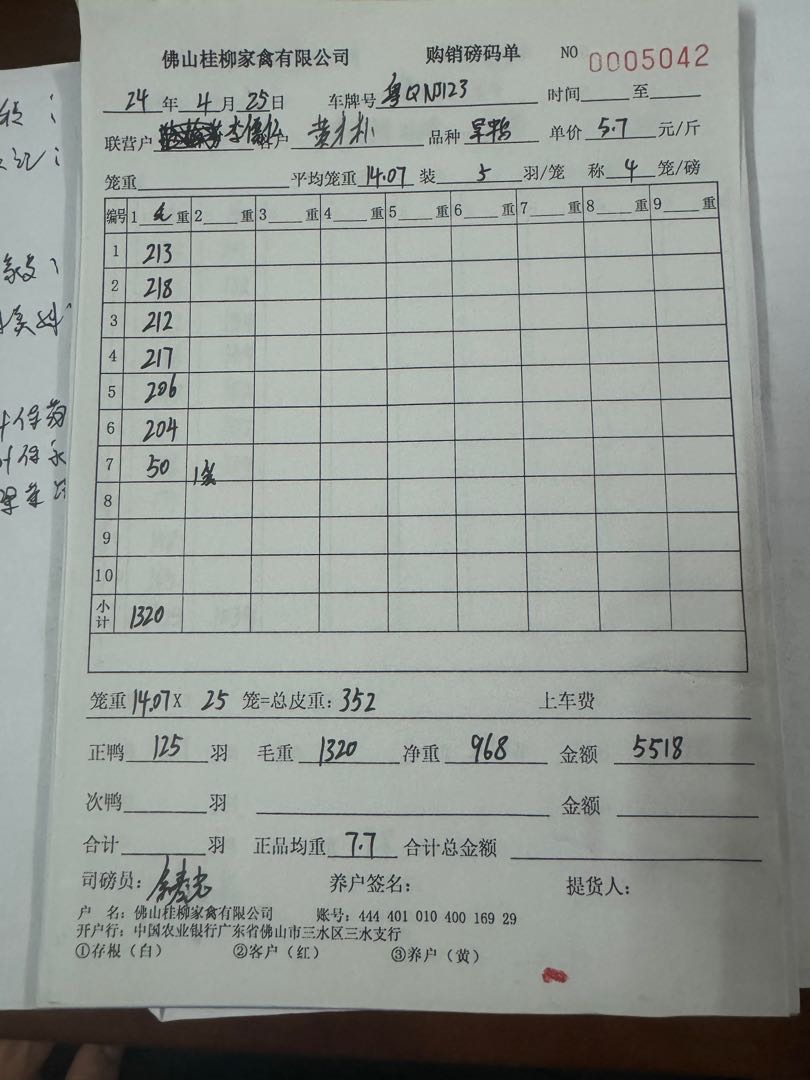 佛山桂柳家禽有限公司 购销磅码单 NO 0005042
24年4月25日 车牌号 粤QNJ123 时间 至
联营户 客户 品种 单价 5.7 元/斤
笼重 平均笼重 14.07 装 5 羽/笼 称 4 笼/磅
编号 1 毛 重 2 重 3 重 4 重 5 重 6 重 7 重 8 重 9 重
1 213
2 218
3 212
4 217
5 206
6 204
7 50 1笼
8
9
10
小计 1320
笼重 14.07 X 25 笼=总皮重：352 上车费
正鸭 125 羽 毛重 1320 净重 968 金额 5518
次鸭 羽 金额
合计 羽 正品均重 7.7 合计总金额
司磅员： 养户签名： 提货人：
户 名：佛山桂柳家禽有限公司 账号：444 401 010 400 169 29
开户行：中国农业银行广东省佛山市三水区三水支行
①存根（白） ②客户（红） ③养户（黄）